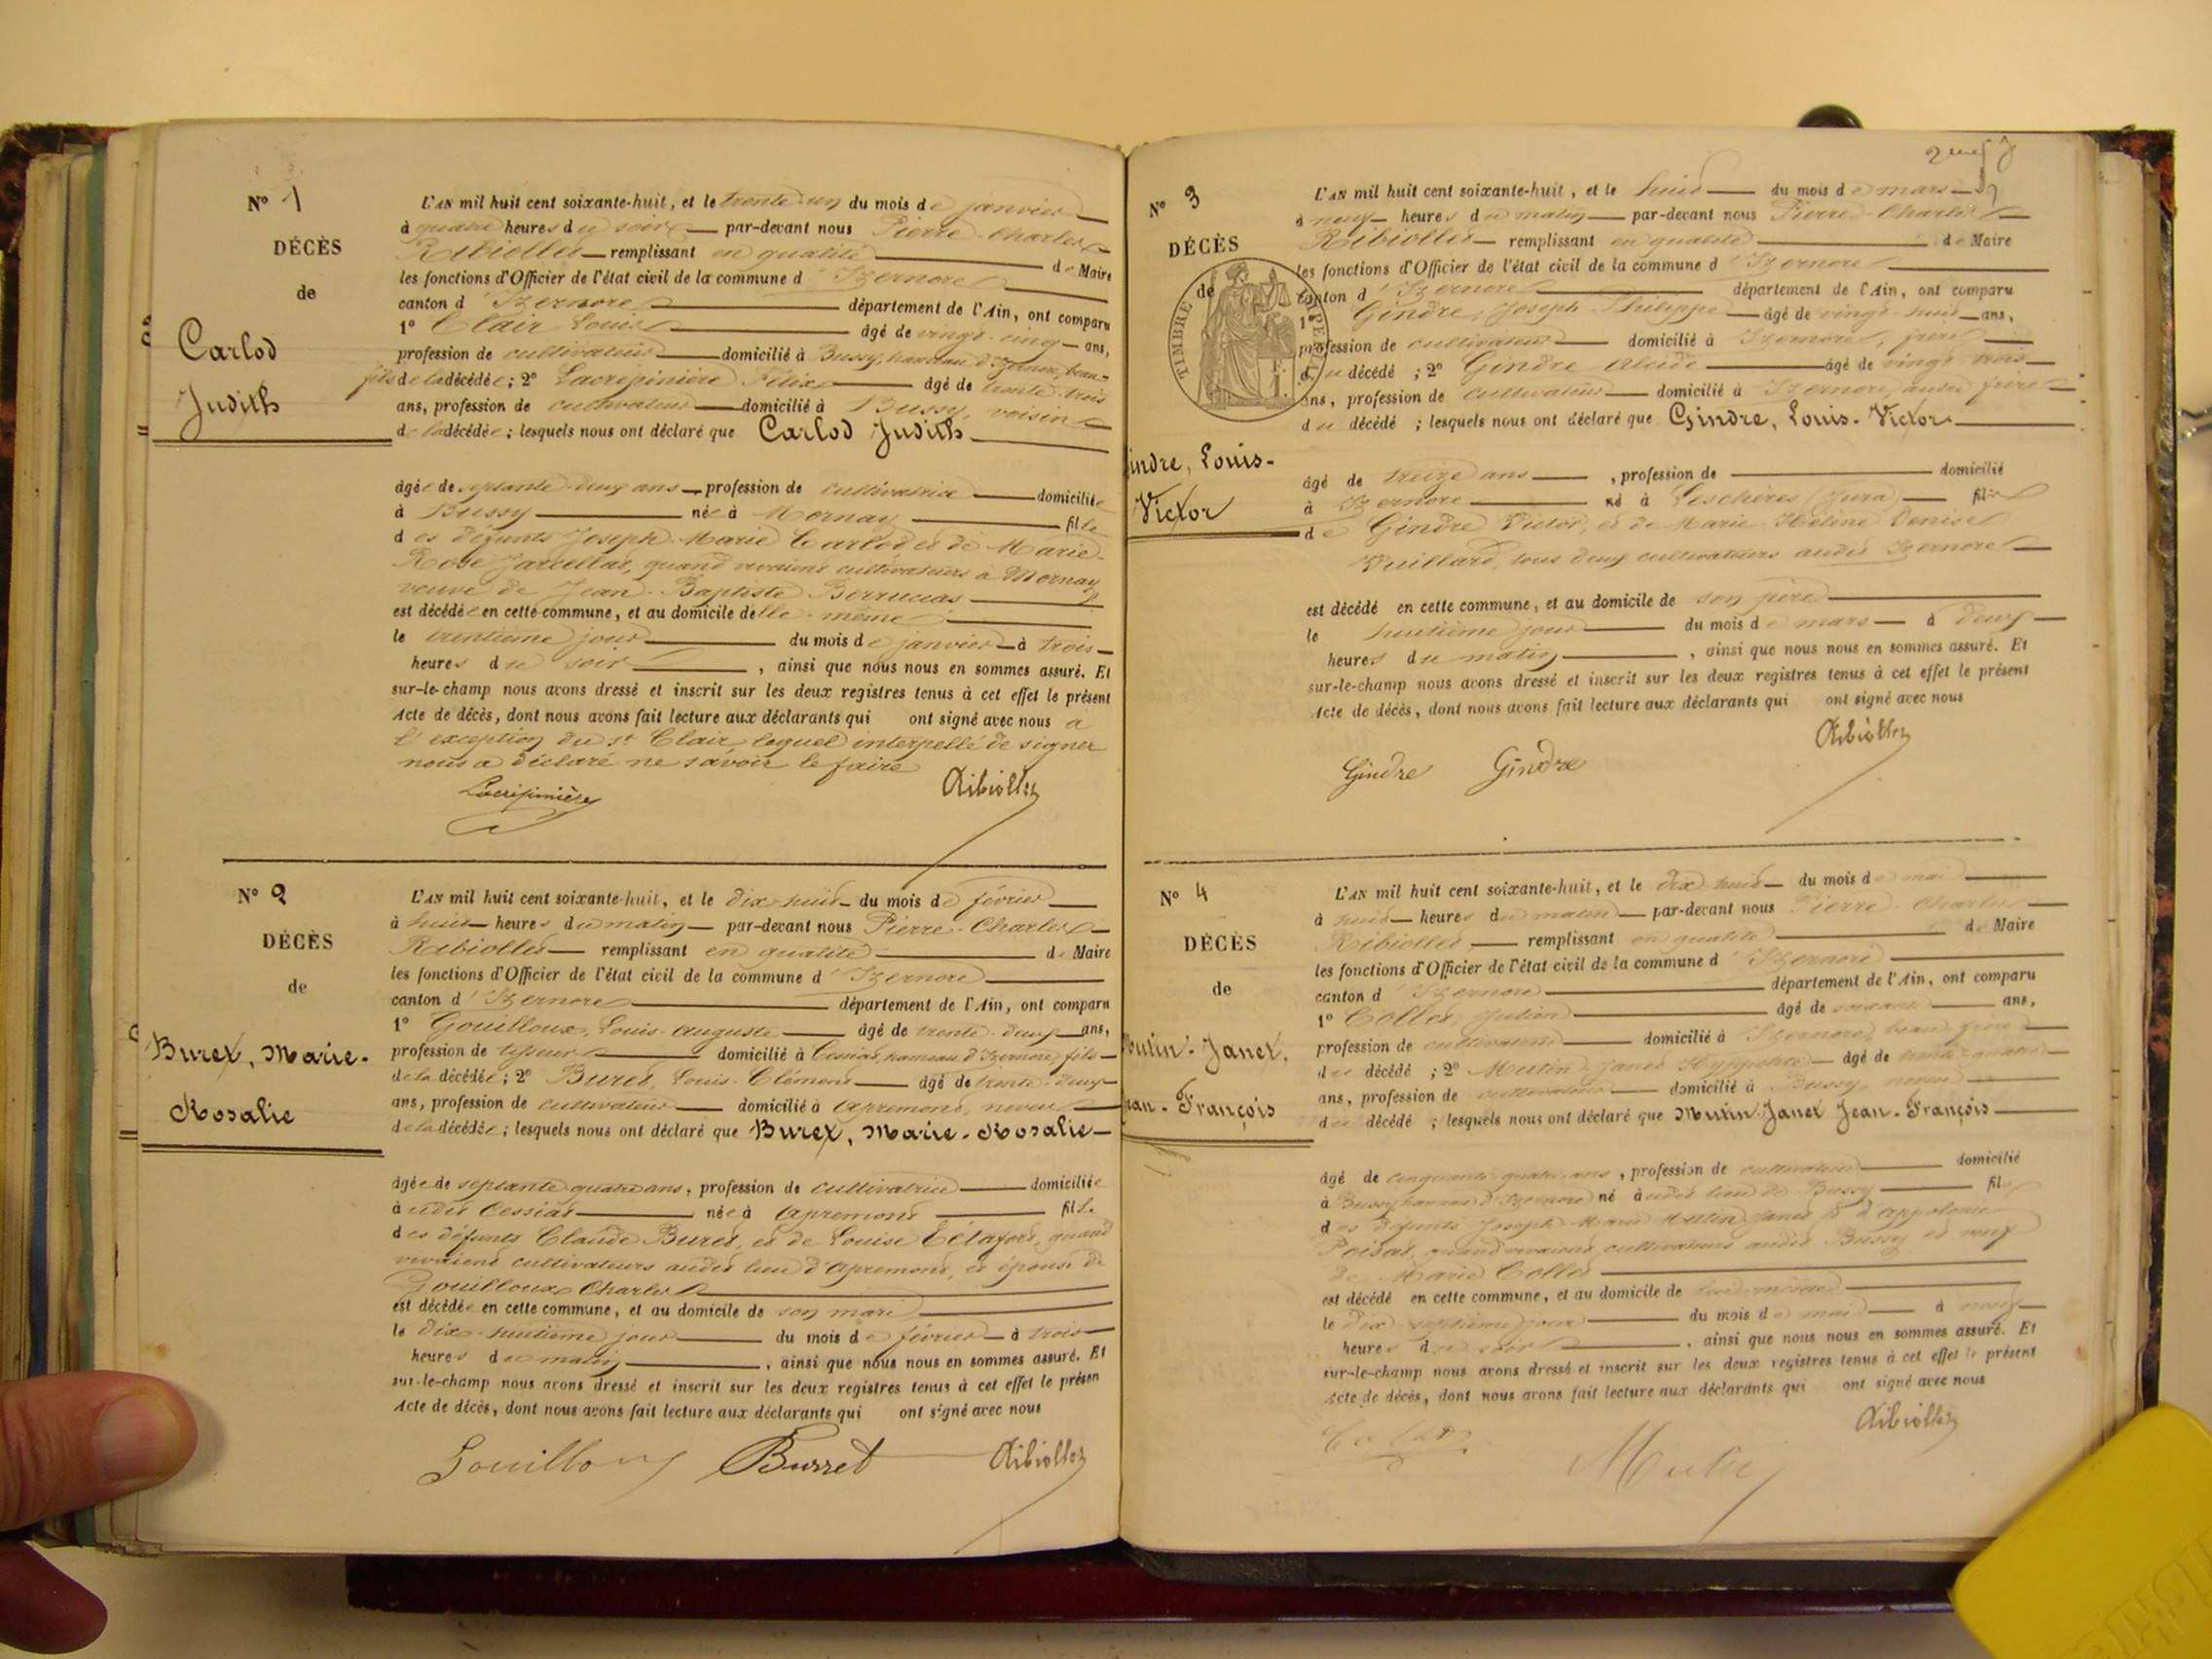 N° 1
DÉCÈS
de
Carlod
Judith
L'AN mil huit cent soixante-huit, et le trente-un du mois de janvier
à quatre heures du soir par-devant nous Pierre-Charles
Ribiollet remplissant en qualité de Maire
les fonctions d'Officier de l'état civil de la commune d'Izernore
canton d'Izernore département de l'Ain, ont comparu
1° Clair Louis âgé de vingt-cinq ans,
profession de cultivateur domicilié à Bussy, hameau d'Izernore, beau-
fils de la décédée ; 2° Lacrépinière Félix âgé de trente-trois
ans, profession de cultivateur domicilié à Bussy, voisin
de la décédée ; lesquels nous ont déclaré que Carlod Judith
âgée de septante-deux ans profession de cultivatrice domiciliée
à Bussy née à Mornay fille
des défunts Joseph-Marie Carlod et de Marie-
Rose quand vivaient cultivateurs à Mornay
veuve de Jean-Baptiste
est décédée en cette commune, et au domicile d'elle-même
le trentième jour du mois de janvier à trois
heures du soir , ainsi que nous nous en sommes assuré. Et
sur-le-champ nous avons dressé et inscrit sur les deux registres tenus à cet effet le présent
Acte de décès, dont nous avons fait lecture aux déclarants qui ont signé avec nous a
l'exception du sr Clair lequel interpellé de signer
nous a déclaré ne savoir le faire
Lacrépinière Ribiollet
N° 2
DÉCÈS
de
Buret, Marie-
Rosalie
L'AN mil huit cent soixante-huit, et le dix-huit du mois de février
à huit heures du matin par-devant nous Pierre-Charles
Ribiollet remplissant en qualité de Maire
les fonctions d'Officier de l'état civil de la commune d'Izernore
canton d'Izernore département de l'Ain, ont comparu
1° Gouilloux, Louis-Auguste âgé de trente-deux ans,
profession de domicilié à Cessiat, hameau d'Izernore, fils
de la décédée ; 2° Buret, Louis-Clément âgé de trente-deux
ans, profession de cultivateur domicilié à Apremont, neveu
de la décédée ; lesquels nous ont déclaré que Buret, Marie-Rosalie
âgée de septante quatre ans, profession de cultivatrice domiciliée
à udit Cessiat née à Apremont fille
des défunts Claude Buret, et de Louise quand
vivaient cultivateurs audit lieu d'Apremont, et épouse de
Gouilloux Charles
est décédée en cette commune, et au domicile de son mari
le dix-huitième jour du mois de février à trois
heures du matin , ainsi que nous nous en sommes assuré. Et
sur-le-champ nous avons dressé et inscrit sur les deux registres tenus à cet effet le présen
Acte de décès, dont nous avons fait lecture aux déclarants qui ont signé avec nous
Gouilloux Burret Ribiollet
N° 3
DÉCÈS
de
TIMBRE
indre, Louis-
Victor
L'AN mil huit cent soixante-huit, et le huit du mois de mars
à neuf heures du matin par-devant nous Pierre-Charles
Ribiollet remplissant en qualité de Maire
les fonctions d'Officier de l'état civil de la commune d'Izernore
canton d'Izernore département de l'Ain, ont comparu
1° Gindre, Joseph-Philippe âgé de vingt-huit ans,
profession de cultivateur domicilié à Izernore, frère
du décédé ; 2° Gindre Alcide âgé de vingt-trois
ans, profession de cultivateur domicilié à Izernore, autre frère
du décédé ; lesquels nous ont déclaré que Gindre, Louis-Victor
âgé de treize ans , profession de domicilié
à Izernore né à Leschères (Jura) fils
de Gindre Victor, et de Marie-Hélène Denise
Vuillard, tous deux cultivateurs audit Izernore
est décédé en cette commune, et au domicile de son père
le huitième jour du mois de mars à deux
heures du matin , ainsi que nous nous en sommes assuré. Et
sur-le-champ nous avons dressé et inscrit sur les deux registres tenus à cet effet le présent
Acte de décès, dont nous avons fait lecture aux déclarants qui ont signé avec nous
Gindre Gindre Ribiollet
N° 4
DÉCÈS
de
Mutin-Janet,
ean-François
L'AN mil huit cent soixante-huit, et le dix-huit du mois de mai
à huit heures du matin par-devant nous Pierre-Charles
Ribiollet remplissant en qualité de Maire
les fonctions d'Officier de l'état civil de la commune d'Izernore
canton d'Izernore département de l'Ain, ont comparu
1° Collet, Julien âgé de soixante ans,
profession de cultivateur domicilié à Izernore, beau-frère
du décédé ; 2° Mutin-Janet Hyppolite âgé de trente-quatre
ans, profession de cultivateur domicilié à Bussy, neveu
du décédé ; lesquels nous ont déclaré que Mutin-Janet Jean-François
âgé de cinquante-quatre ans , profession de cultivateur domicilié
à Bussy hameau d'Izernore né audit lieu de Bussy fils
des défunts Joseph-Marie Mutin-Janet & d'Appolonie
quand vivaient cultivateurs audit Bussy et veuf
de Marie Collet
est décédé en cette commune, et au domicile de lui-même
le dix-septième jour du mois de mai à neuf
heures du soir , ainsi que nous nous en sommes assuré. Et
sur-le-champ nous avons dressé et inscrit sur les deux registres tenus à cet effet le présent
Acte de décès, dont nous avons fait lecture aux déclarants qui ont signé avec nous
Collet Mutin Ribiollet